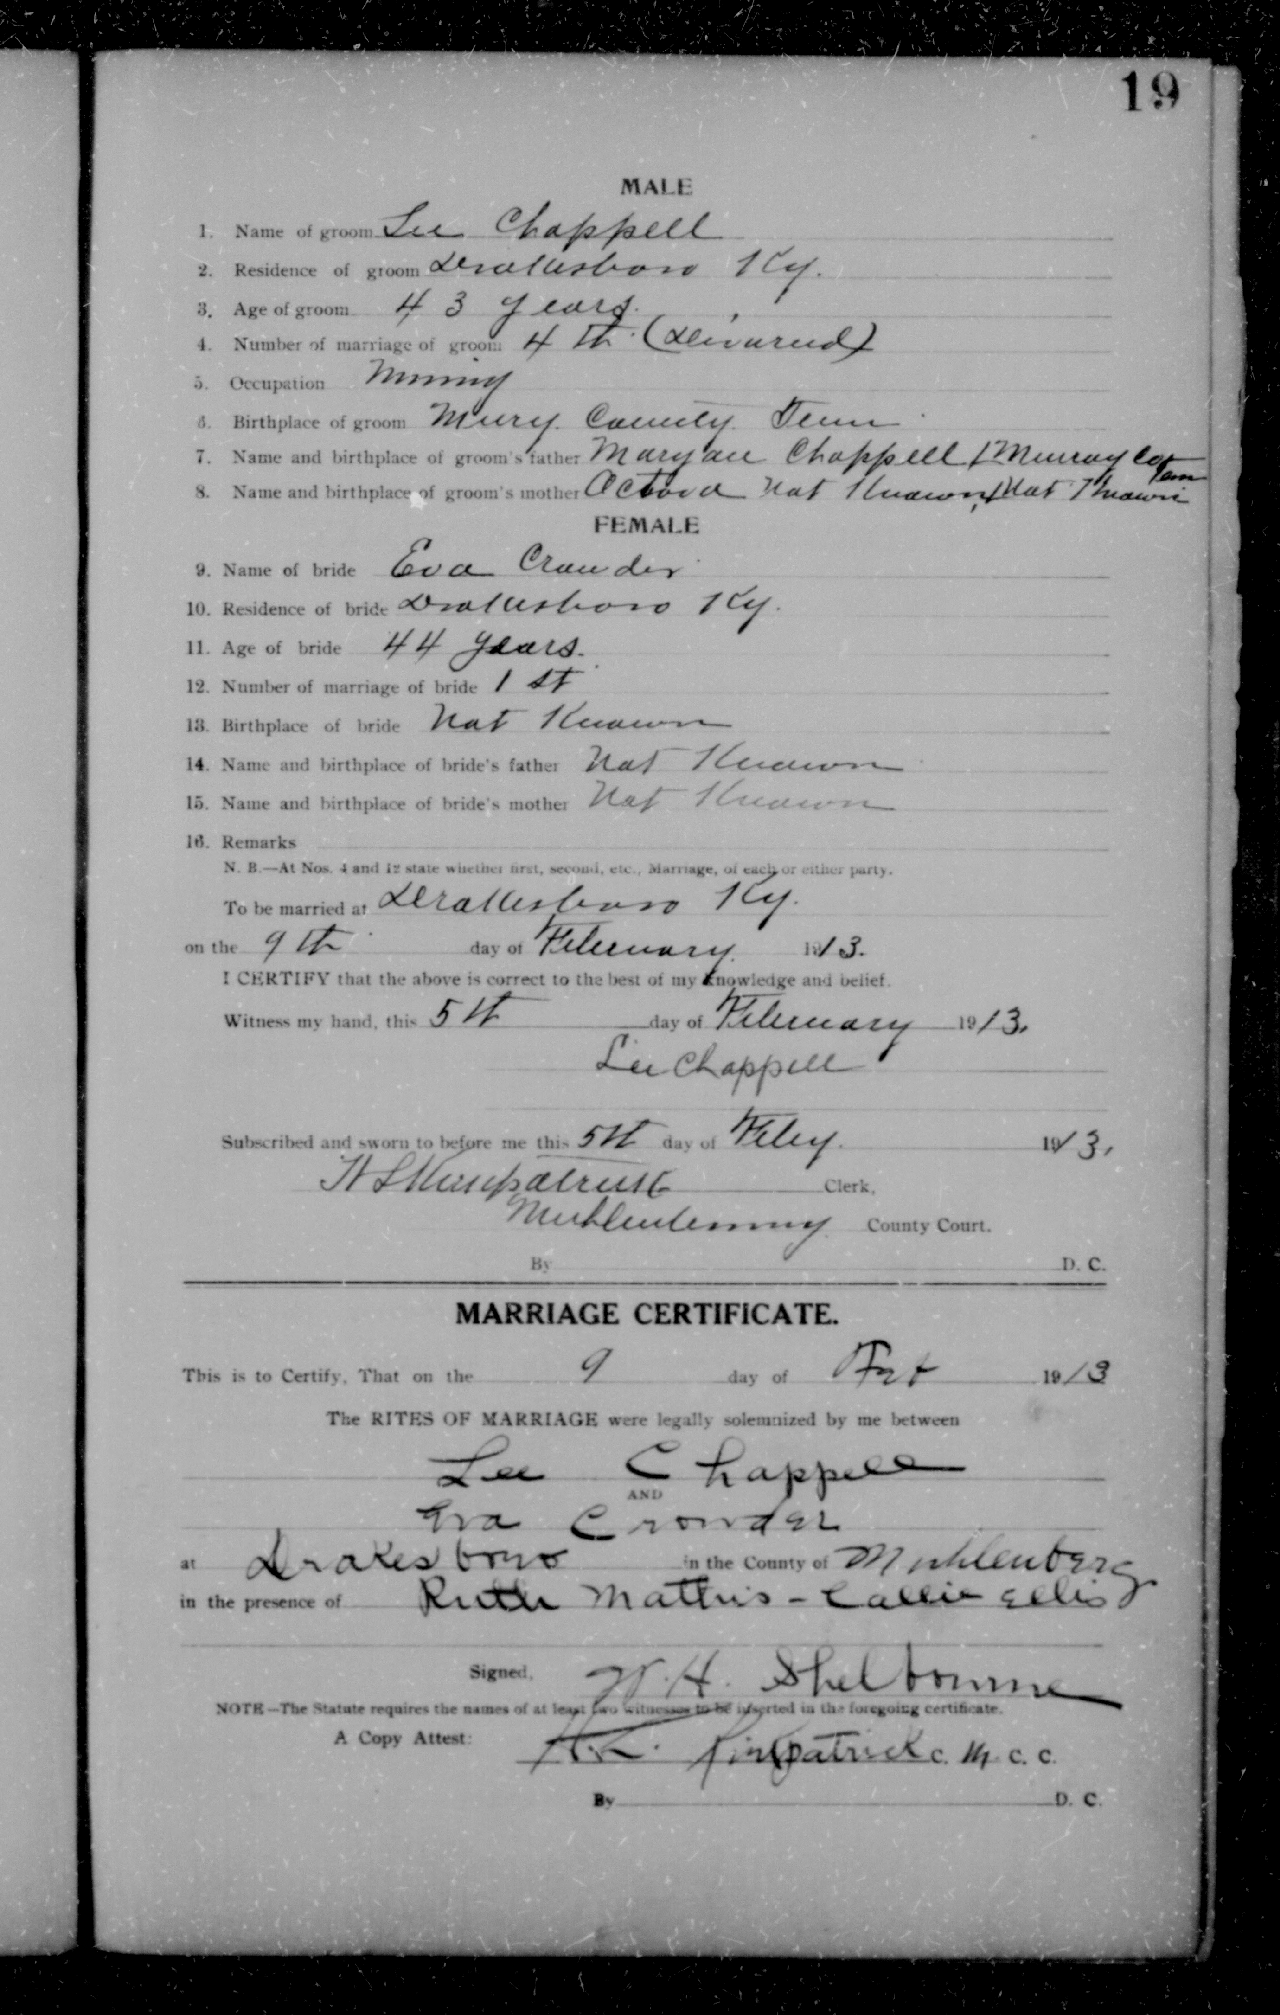 19
MALE
1. Name of groom Lee Chappell
2. Residence of groom Drakesboro Ky.
3. Age of groom 43 years.
4. Number of marriage of groom 4th (Divorced)
5. Occupation Mining
6. Birthplace of groom Mury County Tenn
7. Name and birthplace of groom's father Chappell / Murray Co Tenn
8. Name and birthplace of groom's mother Not Known / Not Known
FEMALE
9. Name of bride Eva Crowder
10. Residence of bride Drakesboro Ky.
11. Age of bride 44 years.
12. Number of marriage of bride 1st
13. Birthplace of bride Not Known
14. Name and birthplace of bride's father Not Known
15. Name and birthplace of bride's mother Not Known
16. Remarks
N. B.—At Nos. 4 and 12 state whether first, second, etc., Marriage, of each or either party.
To be married at Drakesboro Ky.
on the 9th day of February 1913.
I CERTIFY that the above is correct to the best of my knowledge and belief.
Witness my hand, this 5th day of February 1913.
Lee Chappell
Subscribed and sworn to before me this 5th day of Feby. 1913.
Kirkpatrick Clerk,
Muhlenberg County Court.
By D. C.
MARRIAGE CERTIFICATE.
This is to Certify, That on the 9 day of Feb 1913
The RITES OF MARRIAGE were legally solemnized by me between
Lee Chappell
AND
Eva Crowder
at Drakesboro in the County of Muhlenberg
in the presence of Ruth Mathis - Callie Ellis
Signed, W. H. Shelbourne
NOTE—The Statute requires the names of at least two witnesses to be inserted in the foregoing certificate.
A Copy Attest: Kirkpatrick C. M. C. C.
By D. C.